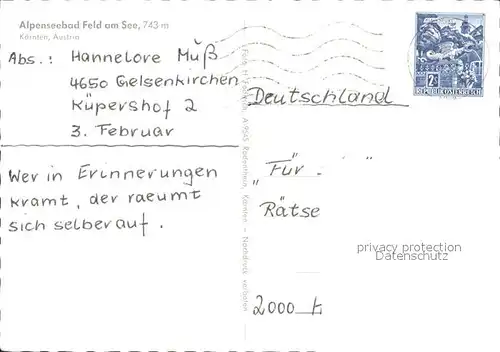 Alpenseebad Feld am See, 743 m
Kärnten, Austria
Abs.: Hannelore Muß
4650 Gelsenkirchen
Küpershof 2
3. Februar
Wer in Erinnerungen
kramt, der raeumt
sich selber auf.
A-9545 Radenthein, Kärnten – Nachdruck verboten
2 S
REPUBLIK ÖSTERREICH
Deutschland
"Für "
Rätse
2000
privacy protection
Datenschutz